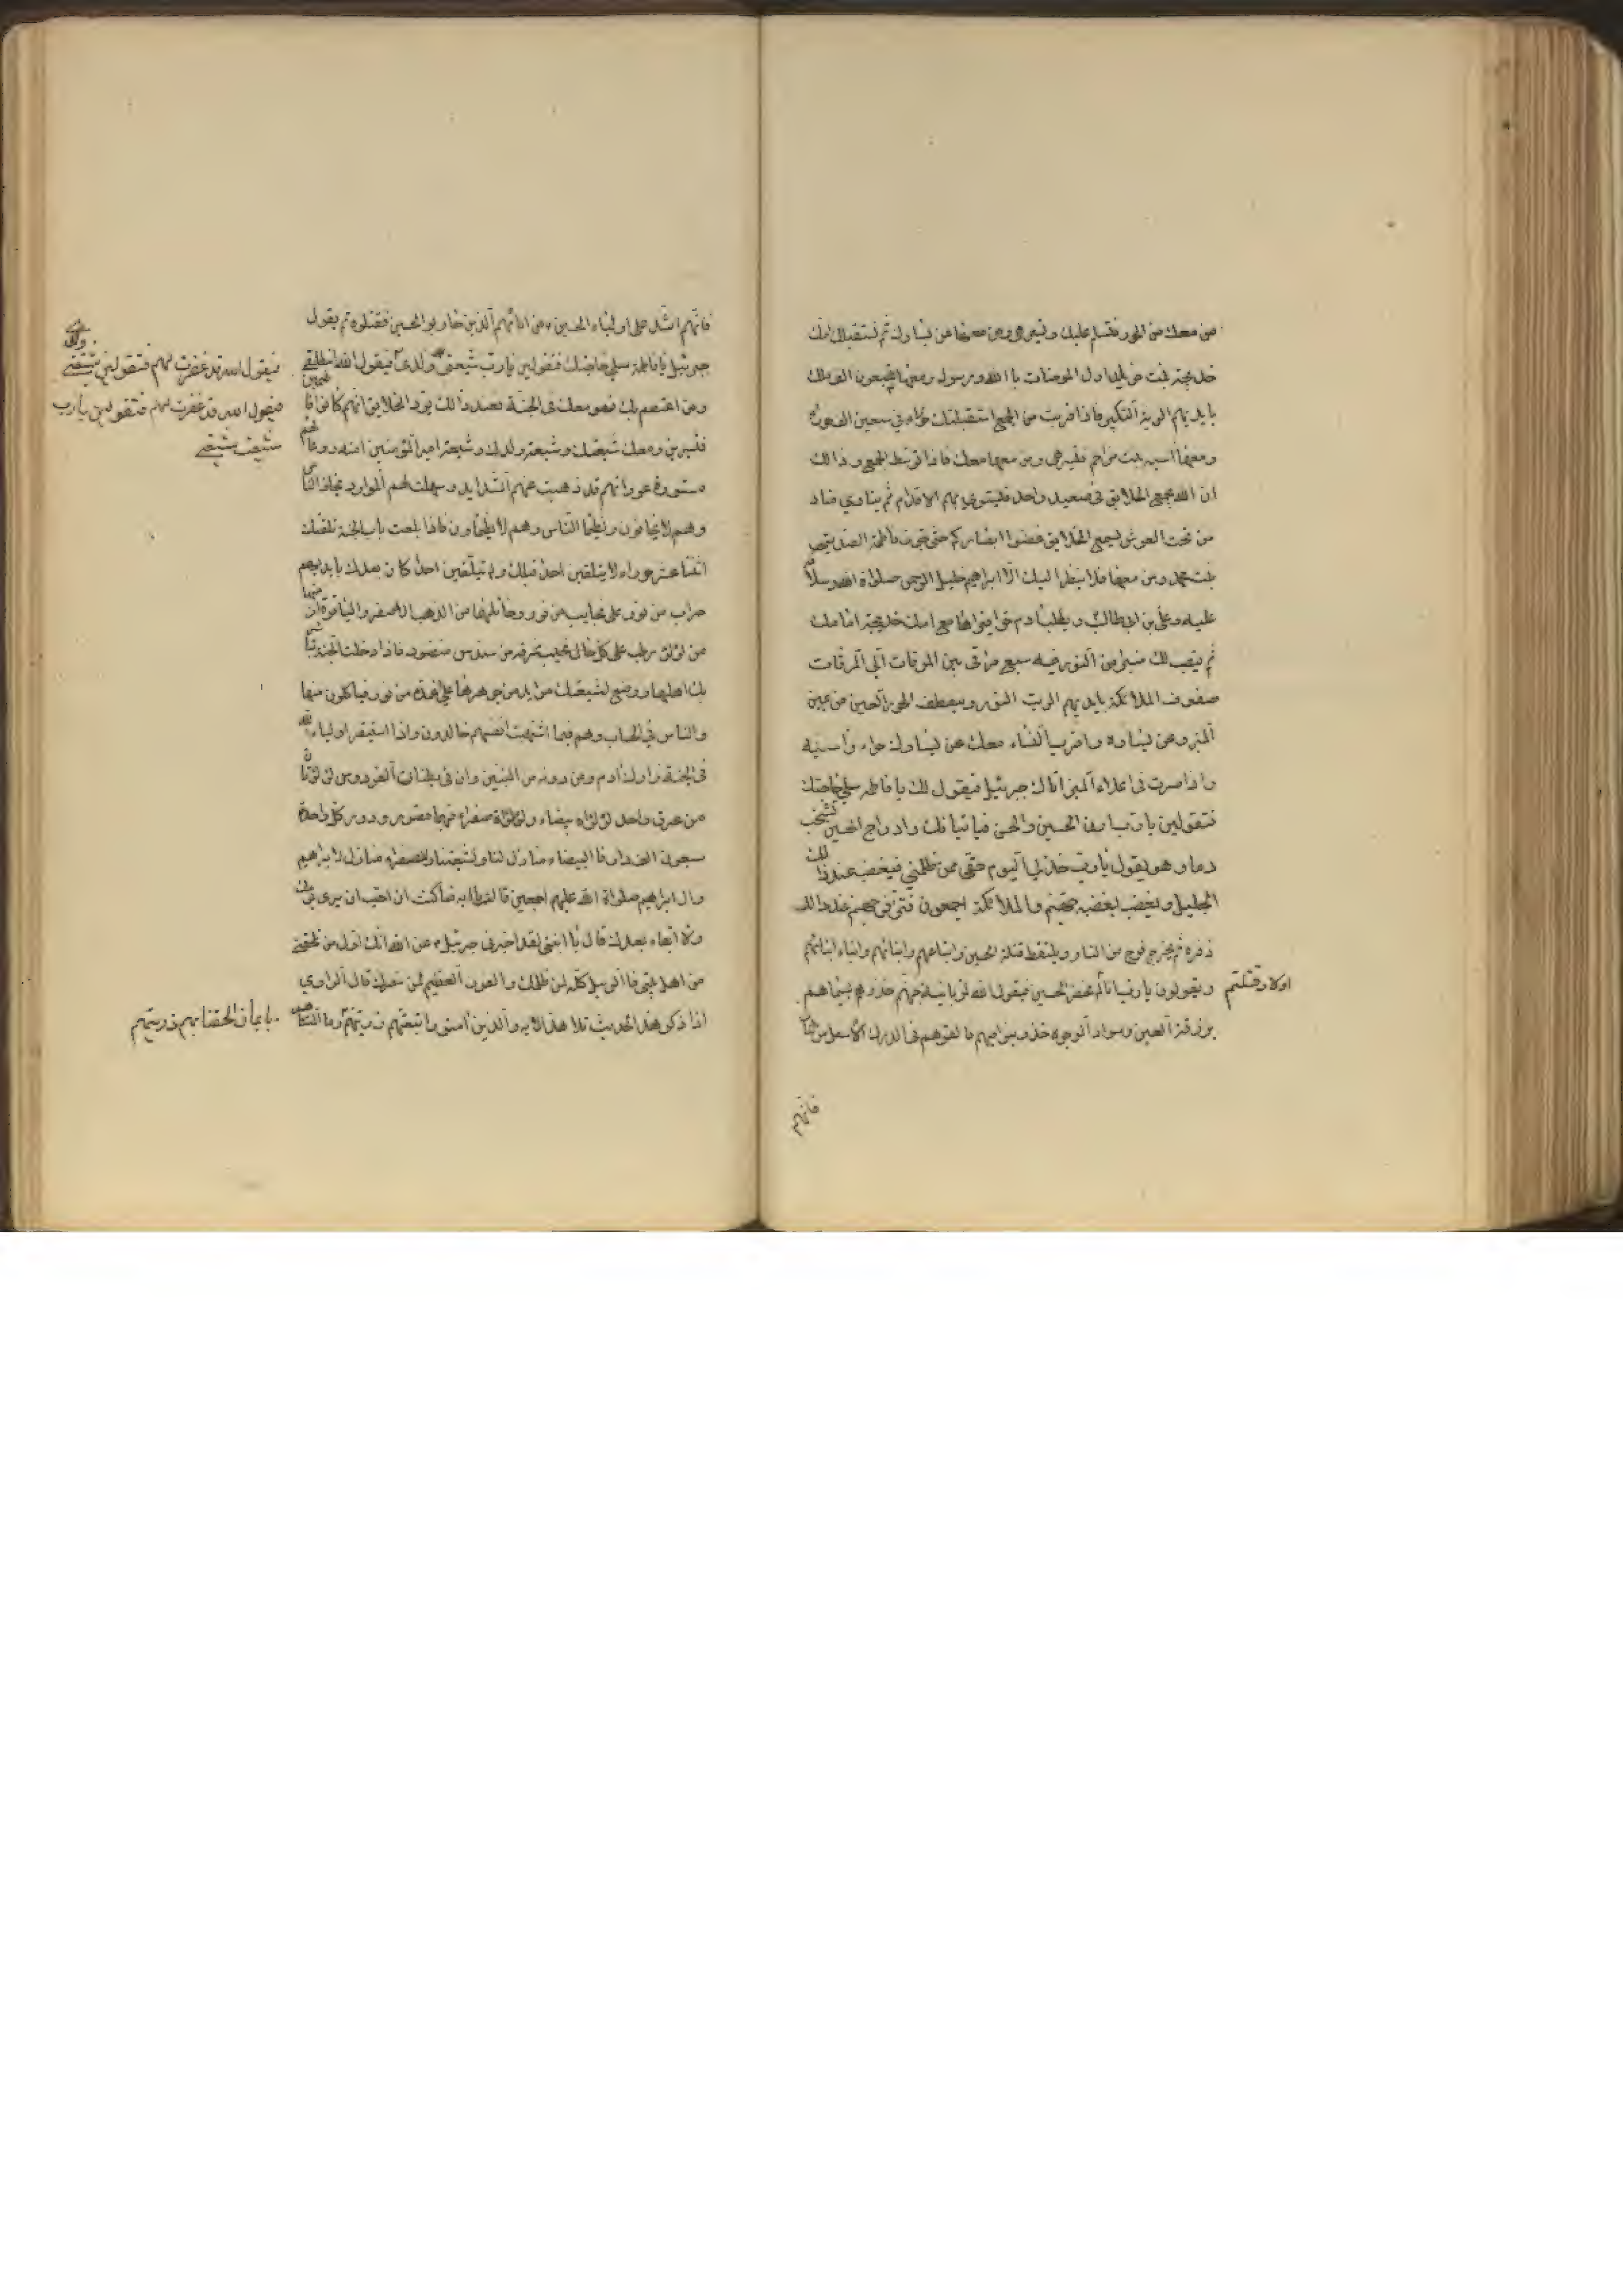 من معك من الحور فتسلم عليك وتسير هي ومن معها عن يسارك ثم تستقبلك امك
خديجة بنت خويلد اول المومنات باالله ورسوله ومعها سبعون الف ملك
بايديهم الوية التكبير فاذا قربت من الجمع استقبلتك حواء في سبعين الف حوراء
ومعها آسيه بنت مزاحم فتسير هي ومن معها معك فاذا توسط الجمع وذالك
ان الله يجمع الخلايق في صعيد واحد فيستوي بهم الاقدام ثم ينادي مناد
من تحت العرش يسمع الخلايق غضوا ابصاركم حتى تجوز فاطمة الصديقة
بنت محمد ومن معها فلا ينظر اليك الّا ابراهيم خليل الرحمن صلواة الله وسلامه
عليه وعلي بن ابيطالب ويطلب ادم حوا فيراها مع امك خديجة امامك
ثم ينصب لك منبر من النور فيه سبع مراقى بين المرقات الى المرقات
صفوف الملائكة بايديهم الوية النور ويصطف الحور العين عن يمين
المنبر وعن يساره واقرب النساء معك عن يسارك حواء وآسيه
واذا صرت في اعلاء المنبر اتاك جبرئيل فيقول لك يا فاطمه سلي حاجتك
فتقولين يا رب ارني الحسين والحسن فياتيانك واوداج الحسين تشخب
دما وهو يقول يا رب خذ لي اليوم حقي ممن ظلمني فيغضب عند ذالك
الجليل ويغضب لغضبه جهنم والملائكة اجمعون فتزفر جهنم عند ذالك
زفره ثم يخرج فوج من النار ويلتقط قتلة الحسين وابناءهم وابنائهم وابناء ابنائهم
ويقولون يا رب انا لم نحضر الحسين فيقول الله لزبانية جهنم خذوهم بسيماهم
بزرقة العين وسواد الوجوه خذوا بنواصيهم فالقوهم في الدرك الاسفل من النار
فانهم
فانهم اشد على اولياء الحسين من ابائهم الذين حاربوا الحسين فقتلوه ثم يقول
جبرئيل يا فاطمة سلي حاجتك فتقولين يا رب شيعتى ولدى فيقول الله انطلقى
فيقول الله قد غفرت لهم فتقولين
فيقول الله قد غفرت لهم فتقولين يا رب
شيعت شيعتى
ومن اعتصم بك فهو معك في الجنة فعند ذالك يود الخلايق انهم كانوا فاطميين
فتسيرين ومعك شيعتك وشيعة ولدك وشيعة امير المؤمنين امنه روعاتهم
مستورة عوراتهم قد ذهبت عنهم الشدايد وسهلت لهم الموارد يخاف الناس
وهم لا يخافون ويظما الناس وهم لا يظمأون فاذا بلغت باب الجنة تلقتك
اثنتا عشر حوراء لا يتلقين احدا قبلك ولا يتلقين احدا كان بعدك بايديهم
حراب من نور على نجايب من نور رحائلها من الذهب الاصفر والياقوت ازمتها
من لؤلؤ رطب على كل نجيب نمرقة من سندس منضود فاذا دخلت الجنة تباشر
بك اهلها ووضع لشيعتك موايد من جوهر على عمد من نور فياكلون منها
والناس في الحساب وهم فيما اشتهت انفسهم خالدون واذا استقر اولياء الله
في الجنة زارك ادم ومن دونه من النبيين وان في بطنان الفردوس لؤلؤتان
من عرق واحد لؤلؤة بيضاء ولؤلؤة صفراء فيها قصور ودور كل واحدة
سبعون الف دار فا البيضاء منازل لنا ولشيعتنا والصفراء منازل لابراهيم
وال ابراهيم صلواة الله عليهم اجمعين قالت يا ابه فما كنت ان احب ان يرى
ولا ابقاء بعدك قال يا ابنتى لقد اخبرنى جبرئيل عن الله انك اول من تلحقنى
من اهل بيتي فا الويل كله لمن ظلمك والفوز العظيم لمن نصرك قال الراوي
اذا ذكر هذا الحديث تلا هذا الايه والذين آمنوا واتبعتهم ذريتهم وما التناهم
بايمان الحقنا بهم ذريتهم